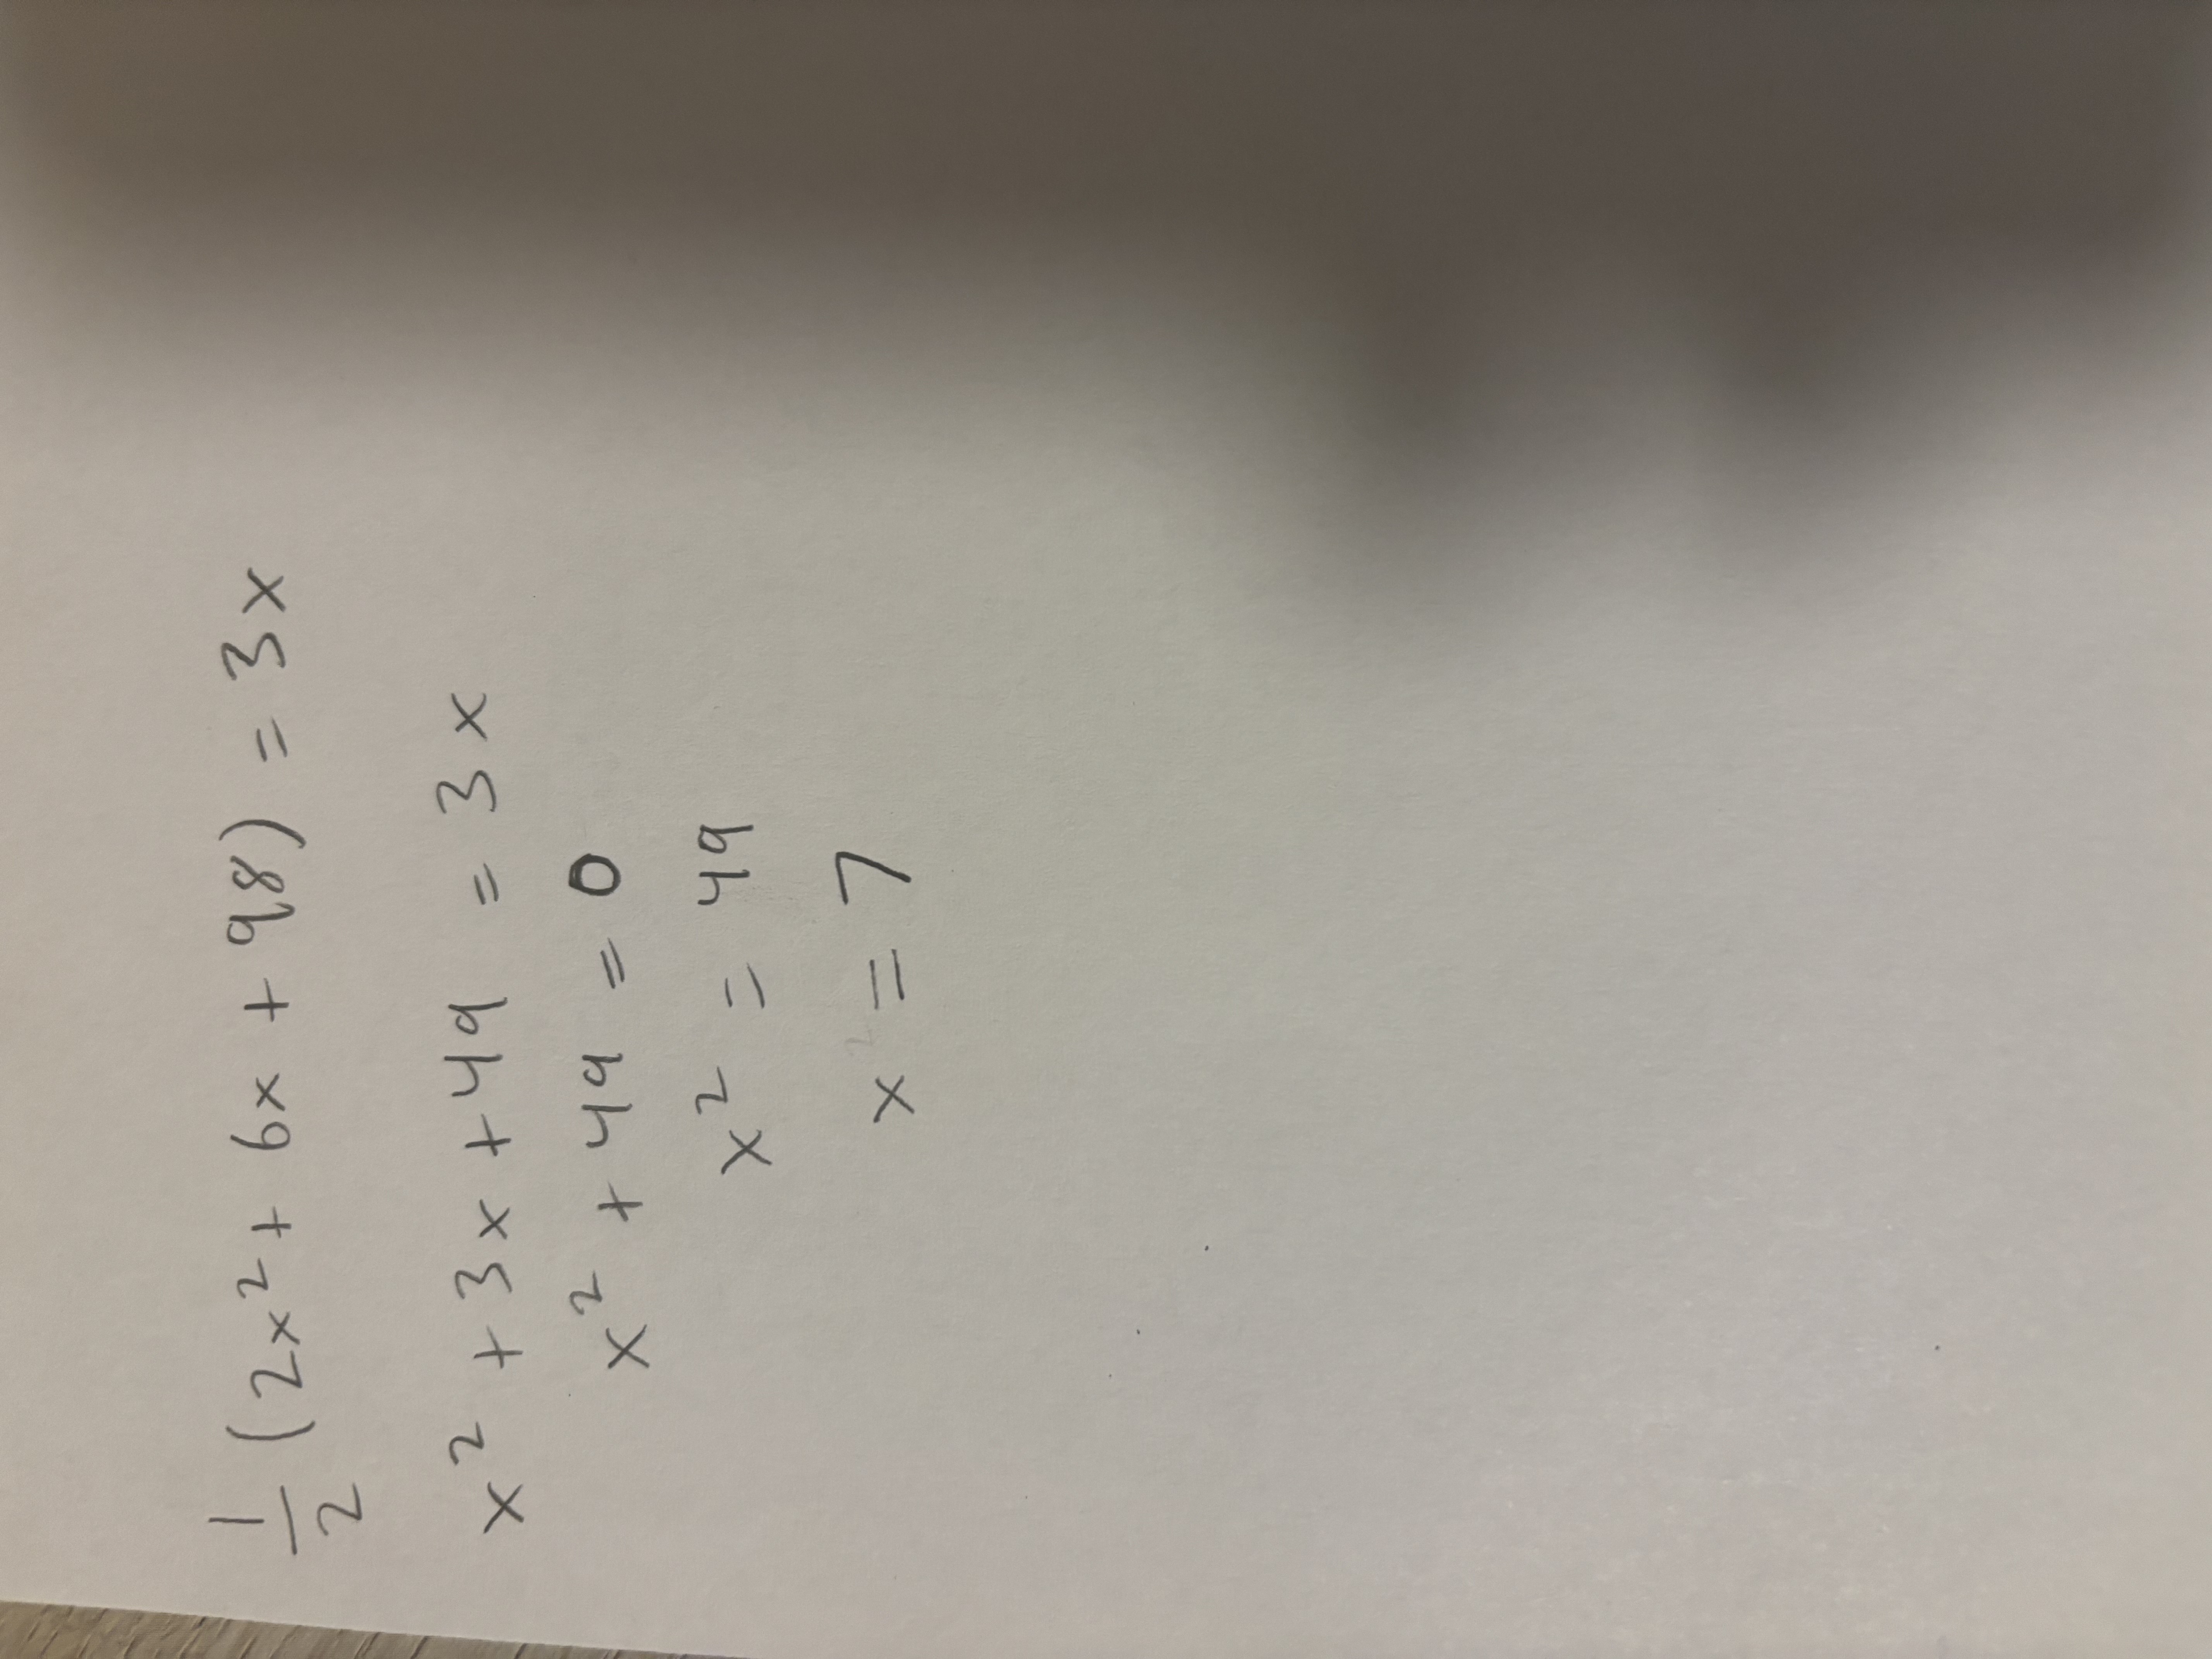 1/2 (2x² + 6x + 98) = 3x
x² + 3x + 49 = 3x
x² + 49 = 0
x² = 49
x = 7